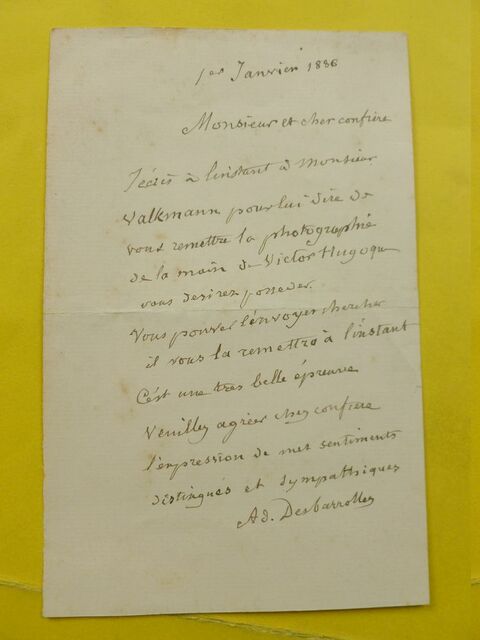 1er Janvier 1886
Monsieur et cher confrère
J'écris à l'instant à Monsieur
Valkmann pour lui dire de
vous remettre la photographie
de la main de Victor Hugo que
vous desirez posseder.
Vous pouvez l'envoyer chercher
il vous la remettra à l'instant
C'est une tres belle épreuve
Veuillez agréer cher confrere
l'expression de mes sentiments
distingués et sympathiques
Ad. Desbarrolles